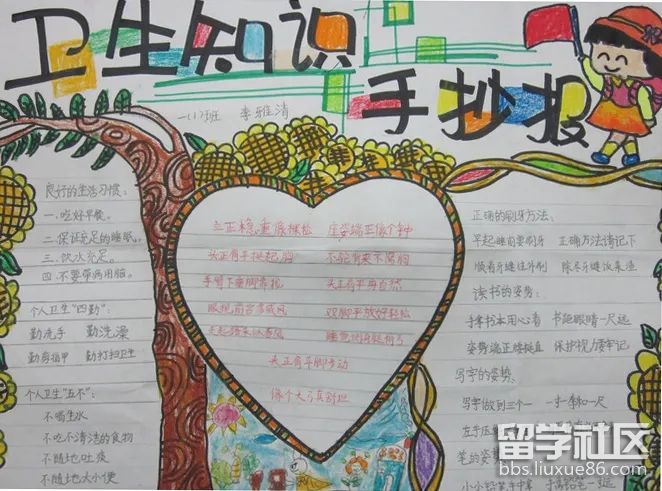 卫生知识
手抄报
一(1)班 李雅清
良好的生活习惯：
一.吃好早餐。
二.保证充足的睡眠。
三.饮水充足。
四.不要带病用脑。
个人卫生"四勤"：
勤洗手 勤洗澡
勤剪指甲 勤打扫卫生
个人卫生"五不"：
不喝生水
不吃不清洁的食物
不随地吐痰
不随地大小便
立正稳重像棵松 坐姿端正像个钟
头正肩平挺起胸
手臂下垂脚靠拢 头正肩平身自然
双脚平放好轻松
走起路来似春风
头正肩平脚步动
正确的刷牙方法：
早起睡前要刷牙 正确方法请记下
顺着牙缝往外刷 除尽牙缝饭菜渣
读书的姿势：
手拿书本用心看 书距眼睛一尺远
姿势端正腰挺直 保护视力要牢记
写字的姿势：
写字做到三个一 一寸一拳和一尺
左手压
笔的姿势
留学社区
bbs.liuxue86.com